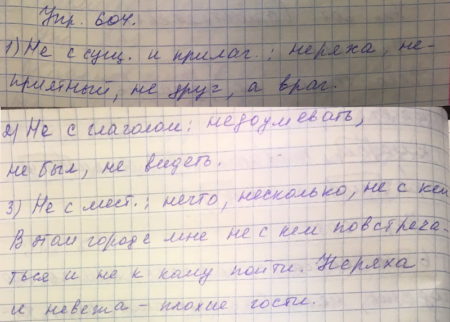 Упр. 604.
1) Не с сущ. и прилаг.: неряха, не-
приятный, не друг, а враг.
2) Не с глаголом: недоумевать,
не был, не видеть.
3) Не с мест.: нечто, несколько, не с кем
В этом городе мне не с кем повстреча-
ться и не к кому пойти. Неряха
и невежа – плохие гости.